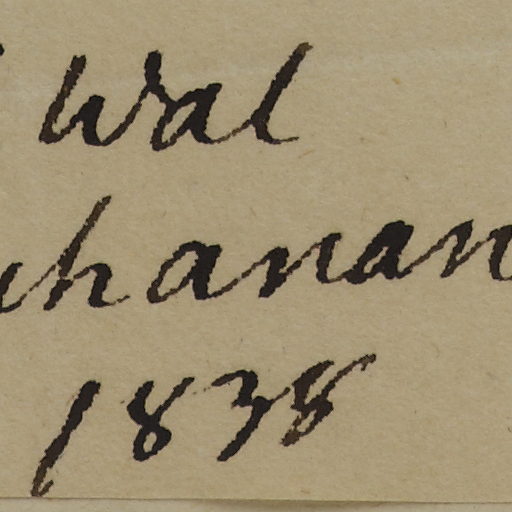 Wal
chanan
1838